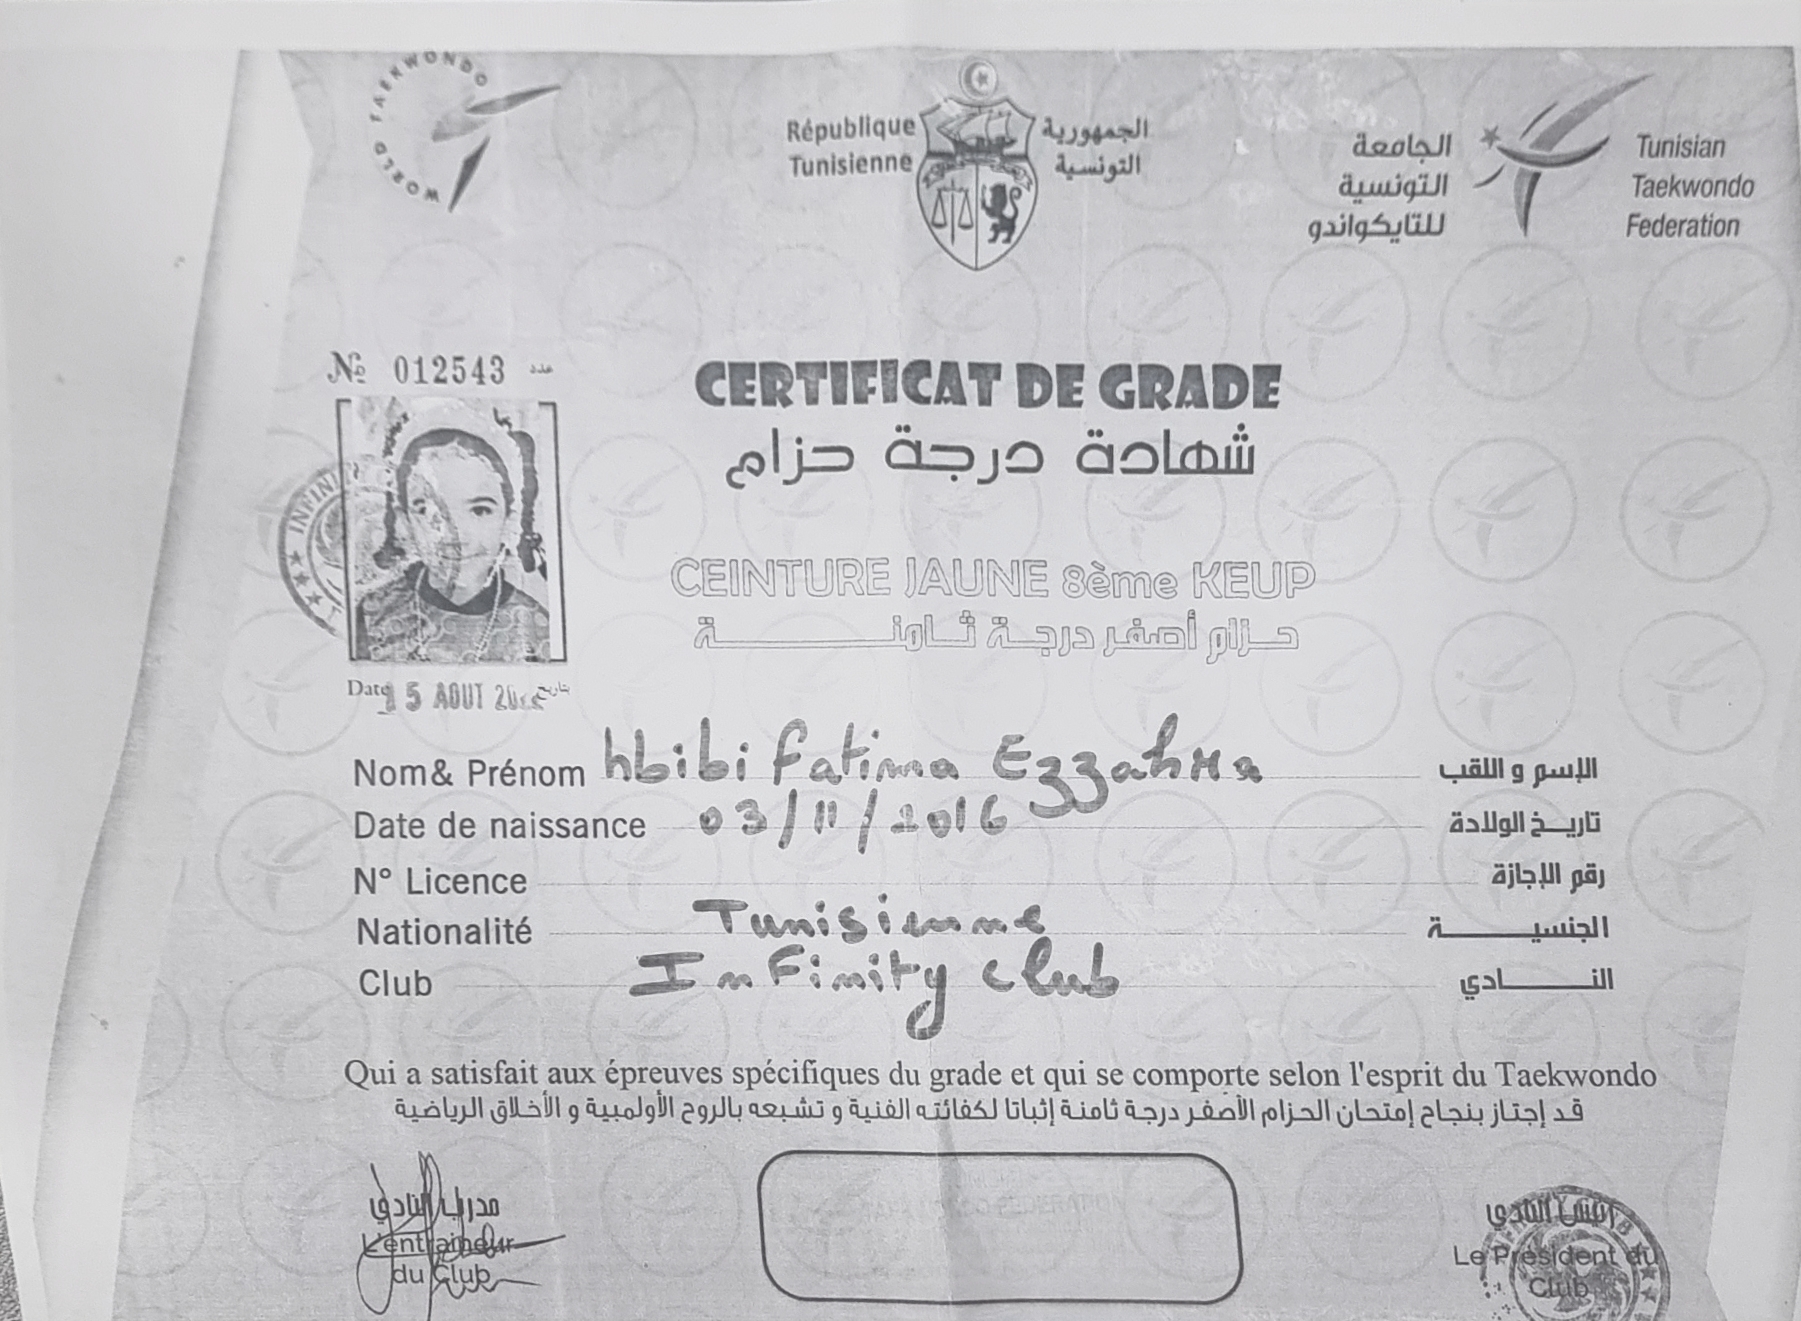 WORLD TAEKWONDO
République
Tunisienne
الجمهورية
التونسية
الجامعة
التونسية
للتايكواندو
Tunisian
Taekwondo
Federation
№ 012543 عدد
CERTIFICAT DE GRADE
شهادة درجة حزام
INFINI
CEINTURE JAUNE 8ème KEUP
حزام أصفر درجة ثامنة
Date 15 AOUT بتاريخ
Nom& Prénom hbibi fatima Ezzahra الإسم و اللقب
Date de naissance 03/11/2016 تاريخ الولادة
N° Licence رقم الإجازة
Nationalité Tunisienne الجنسية
Club Infinity club النادي
Qui a satisfait aux épreuves spécifiques du grade et qui se comporte selon l'esprit du Taekwondo
قد إجتاز بنجاح إمتحان الحزام الأصفر درجة ثامنة إثباتا لكفائته الفنية و تشبعه بالروح الأولمبية و الأخلاق الرياضية
مدرب النادي
L'entraineur
du Club
رئيس النادي
Le Président du
Club